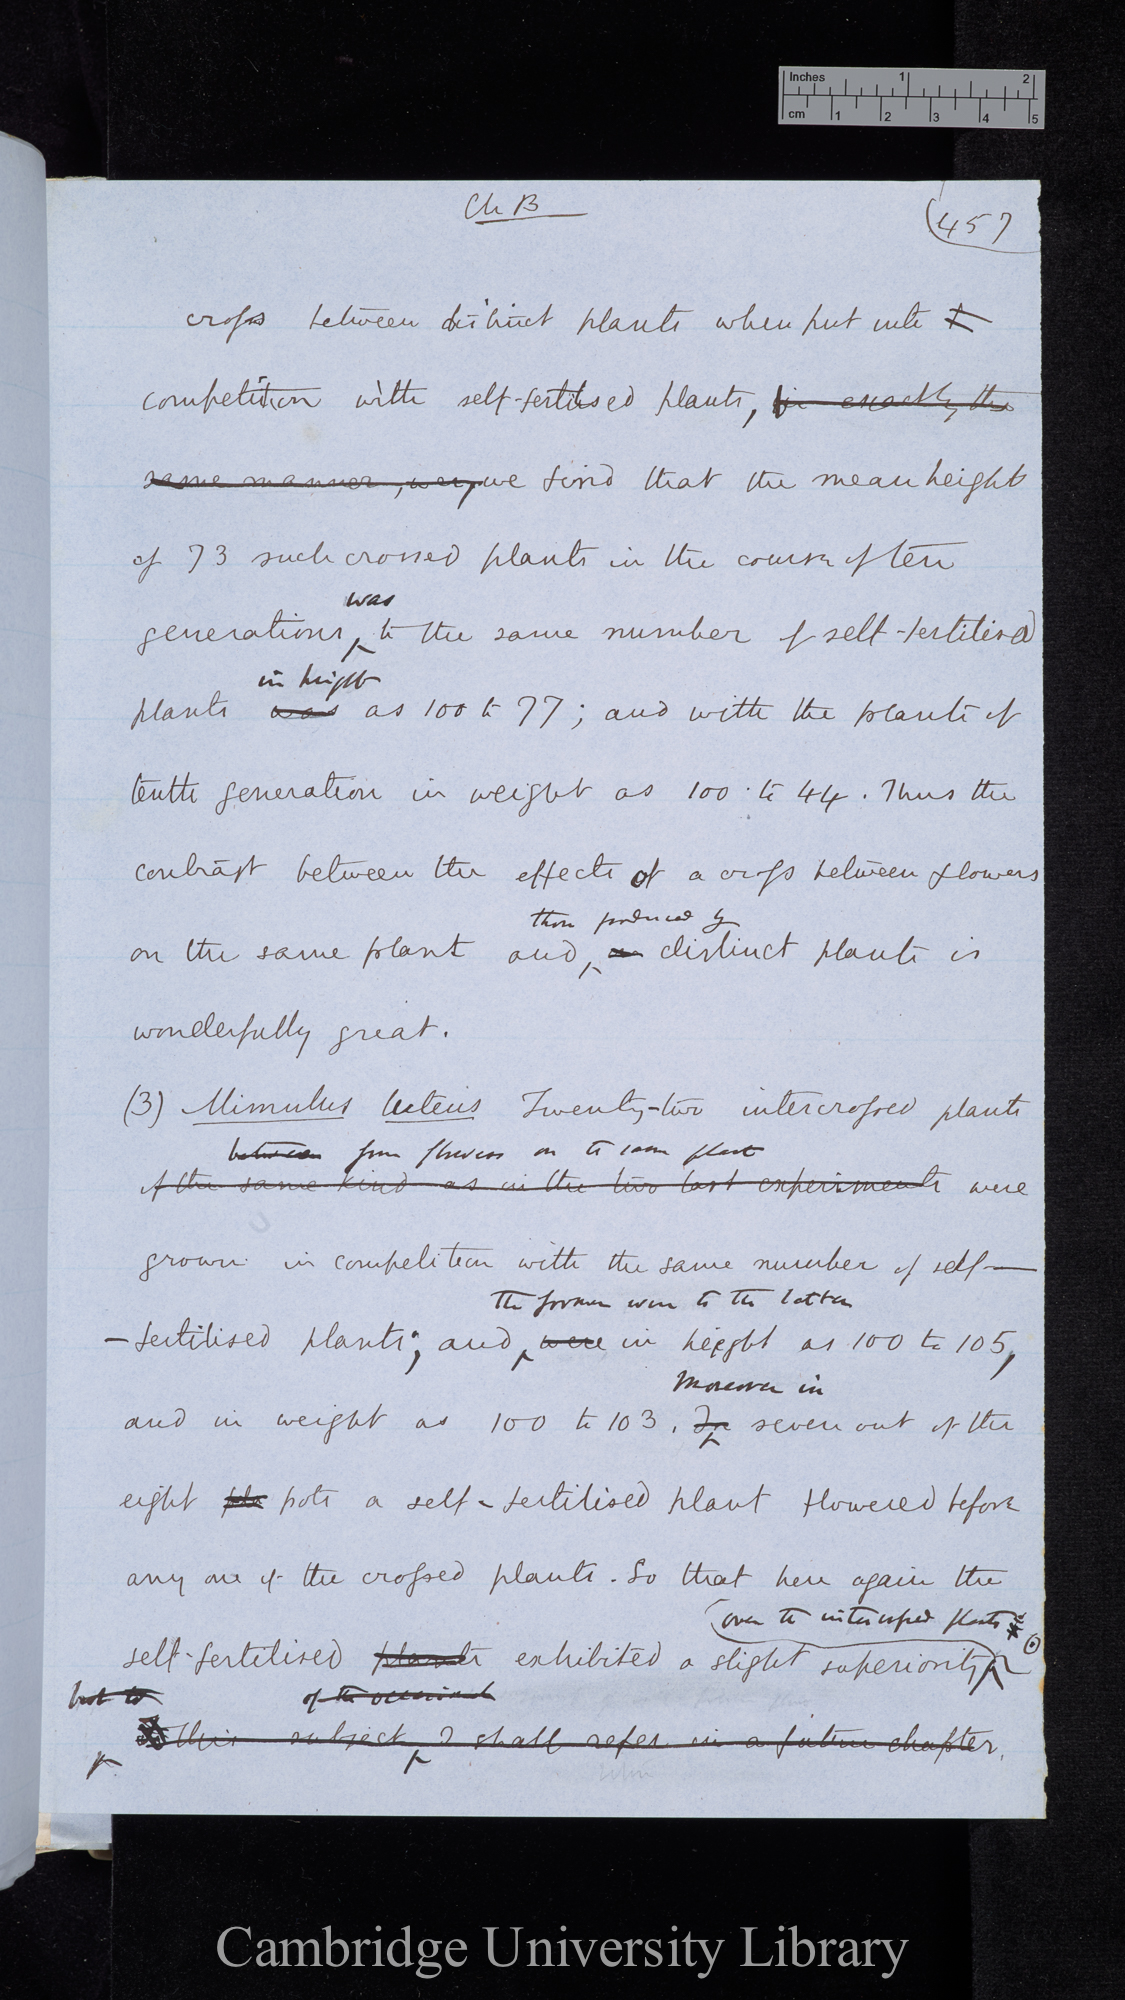 Inches 1 2
cm 1 2 3 4 5
Ch B
(457
cross between distinct plants when put into t
competition with self-fertilised plants, in exactly the
same manner, we, we find that the mean height
of 73 such crossed plants in the course of ten
was
generations, to the same number of self-fertilised
in height
plants was as 100 to 77; and with the plants of
tenth generation in weight as 100 to 44. Thus the
contrast between the effects of a cross between flowers
those produced by
on the same plant and, on distinct plants is
wonderfully great.
(3) Mimulus luteus Twenty-two intercrossed plants
between from flowers on the same plant
of the same kind as in the two last experiments were
grown in competition with the same number of self-
the former were to the latter
-fertilised plants; and, were in height as 100 to 105,
Moreover in
and in weight as 100 to 103. In seven out of the
eight pla pots a self-fertilised plant flowered before
any one of the crossed plants. So that here again the
over the intercrossed plants
self-fertilised plants exhibited a slight superiority
but to of the occasional
this subject, I shall refer in a future chapter.
Cambridge University Library